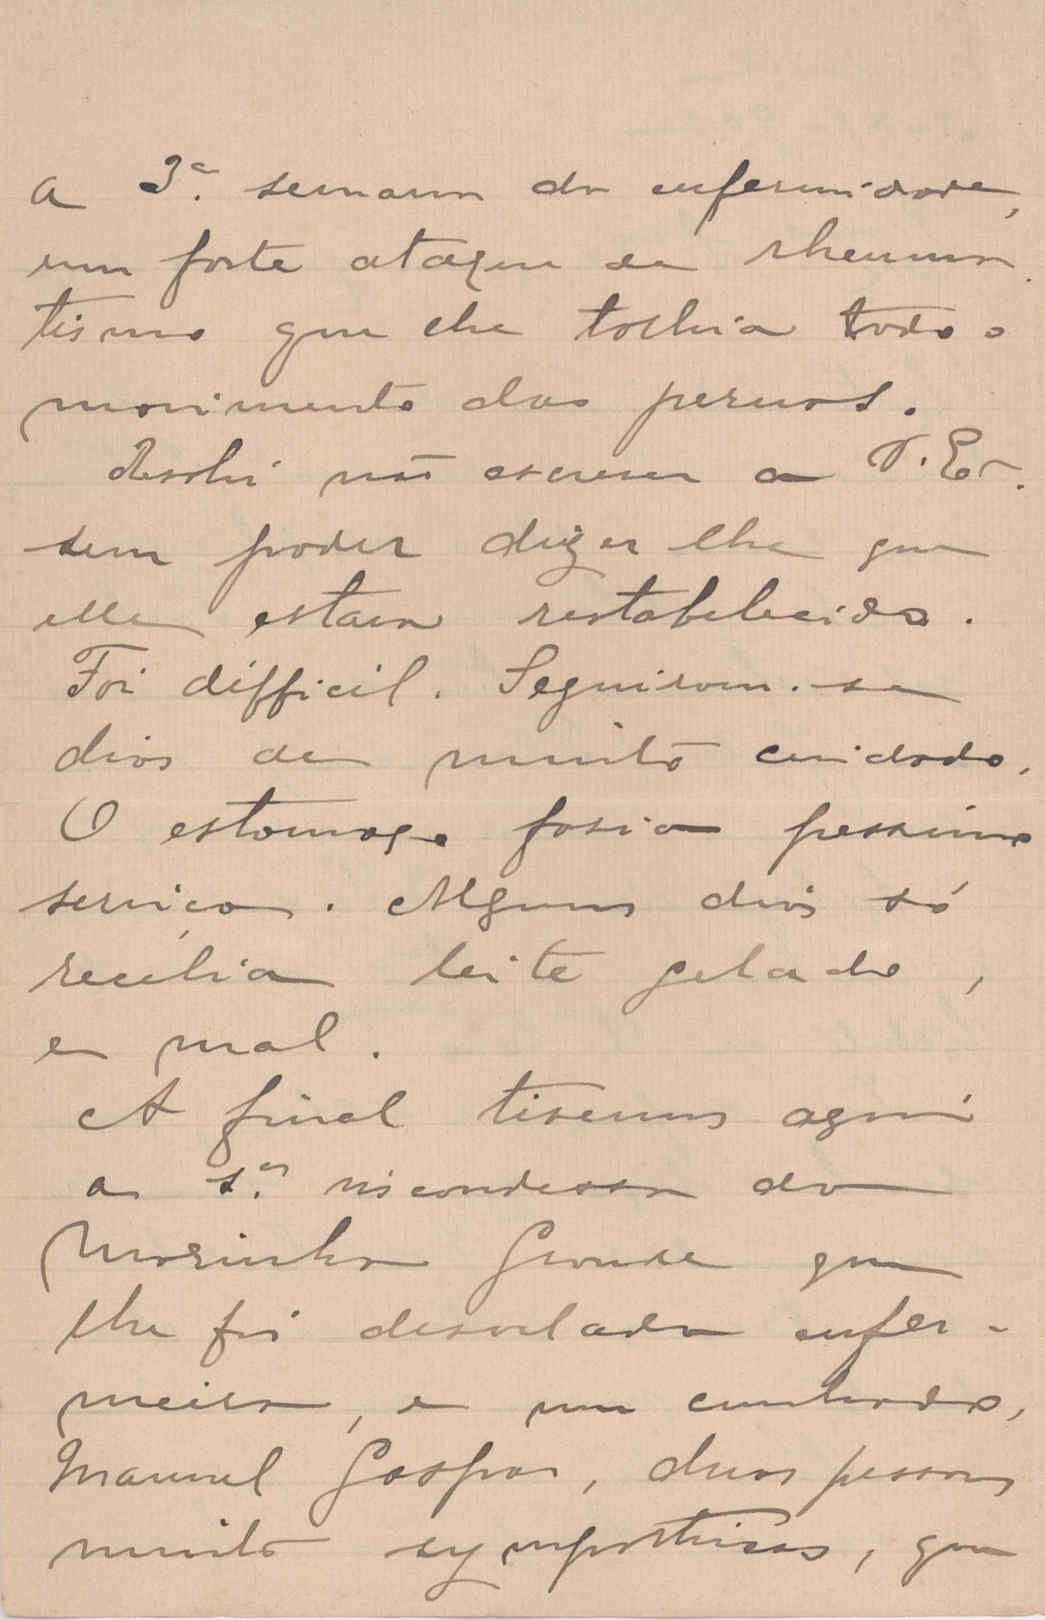 a 3ª. semana da enfermidade,
um forte ataque de rheuma
tismo que lhe tolhia todo o
movimento das pernas.
Resolvi não escrever a V. Exª.
sem poder dizer lhe que
elle estava restabelecido.
Foi difficil. Seguiram-se
dias de muito cuidado.
O estomago fasia pessimo
serviço. Alguns dias só
recebia leite gelado,
e mal.
A final tivemos aqui
a Sª. viscondessa da
Marinha Grande que
lhe foi desvelada enfer-
meira, e um cunhado,
Manuel Gaspar, duas pessoas
muito sympathicas, que